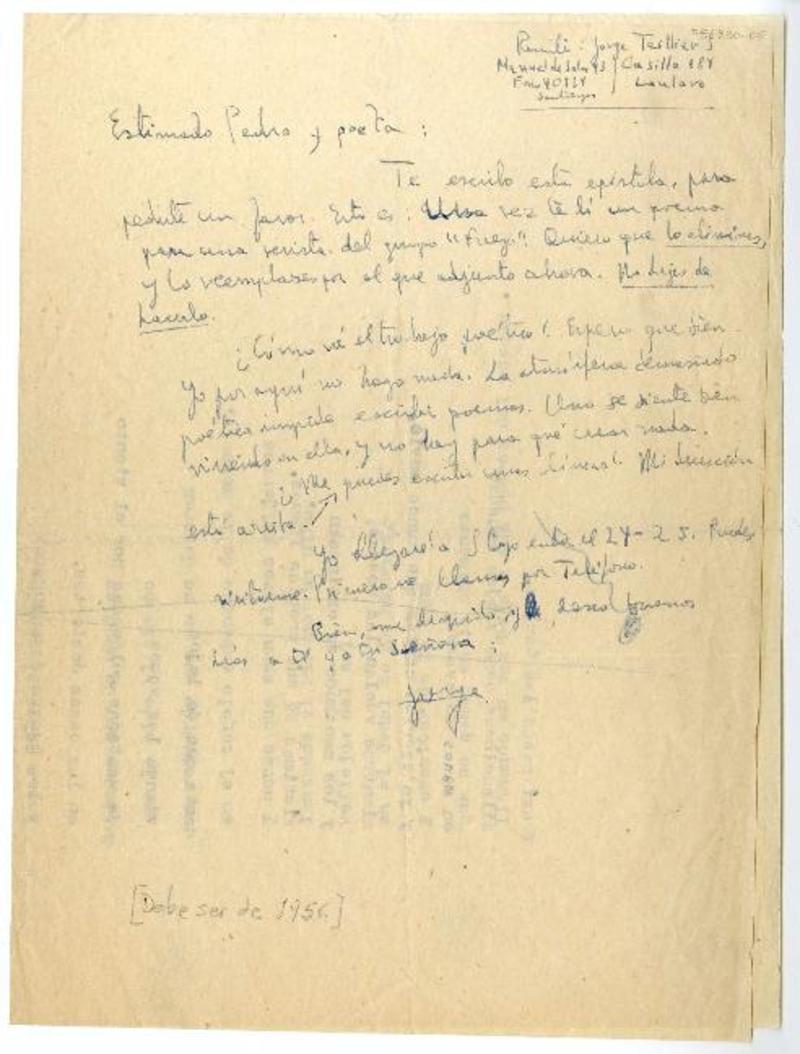 Remite: Jorge Teillier S
Manuel de Salas 43 Casilla 187
Fono 40114 Lautaro
Santiago
Estimado Pedro y poeta:
Te escribo esta epístola, para
pedirte un favor. Esto es: Una vez te dí un poema
para una revista del grupo "Fuego". Quiero que lo elimines,
y lo reemplases por el que adjunto ahora. No dejes de
hacerlo.
¿Cómo vá el trabajo poético? Espero que bien.
Yo por aquí no hago nada. La atmósfera demasiado
poética impide escribir poemas. Uno se siente bien
viviendo en ella, y no hay para qué crear nada.
¿Me puedes escribir unas líneas? Mi dirección
está arriba.
Yo llegaría a Stgo entre el 24-25. Puedes
visitarme. Primero me llamas por Teléfono.
Bien, me despido, y deseo buenos
días a ti y a tu Señora:
Jorge
[Debe ser de 1956.]